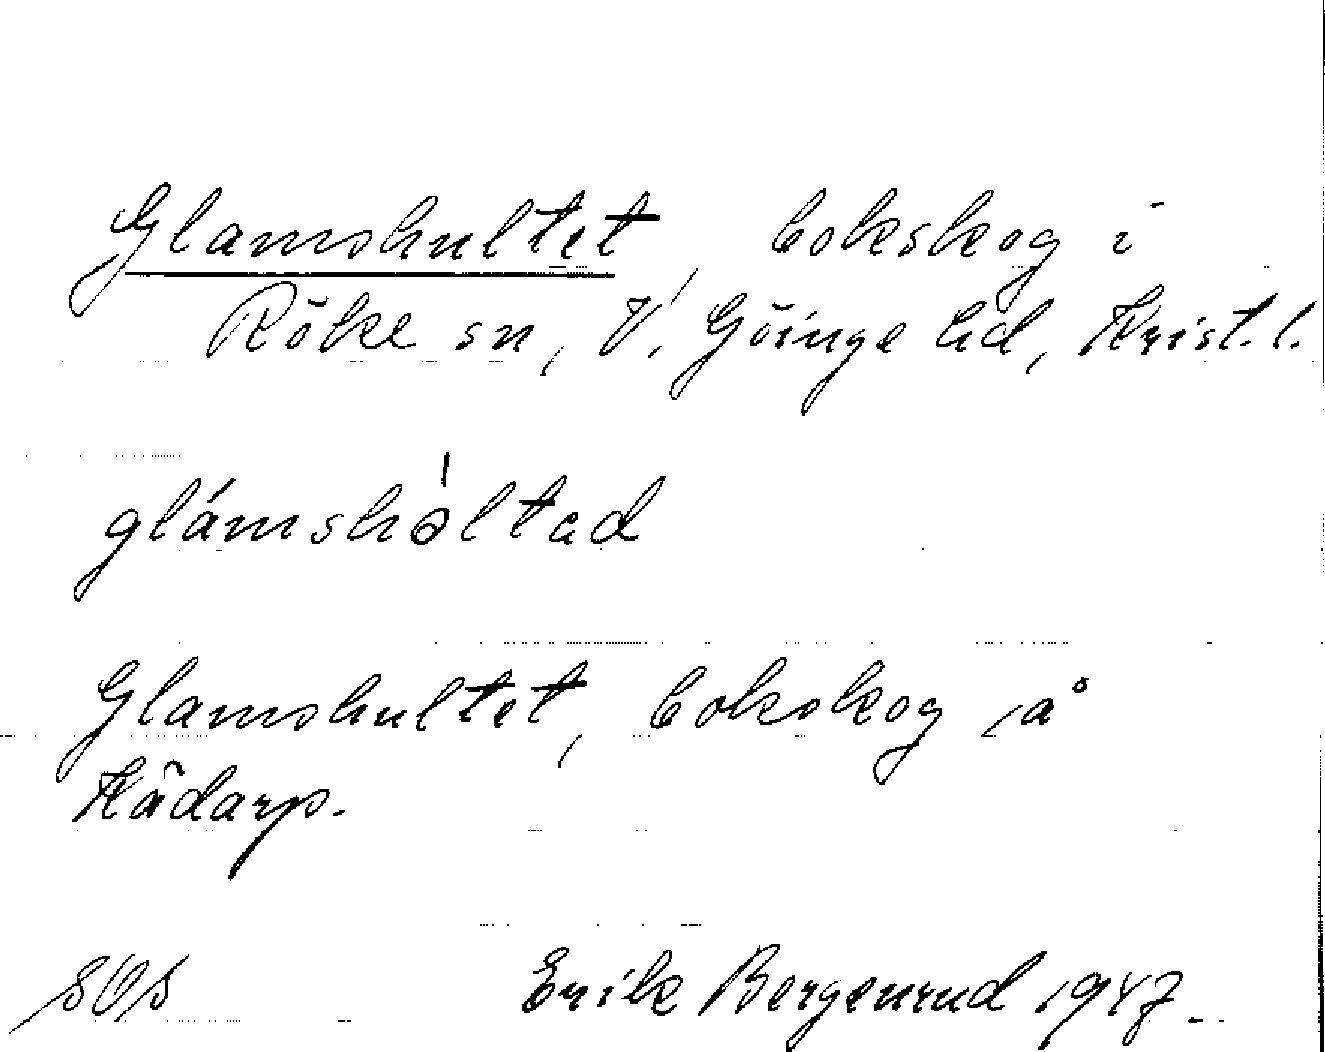 Glamshultet, bokskog i
Röke sn, V. Göinge hd, Krist. l.
glámshòltad
Glamshultet, bokskog på
Kådarp.
SOS Erik Bergenrud 1947.